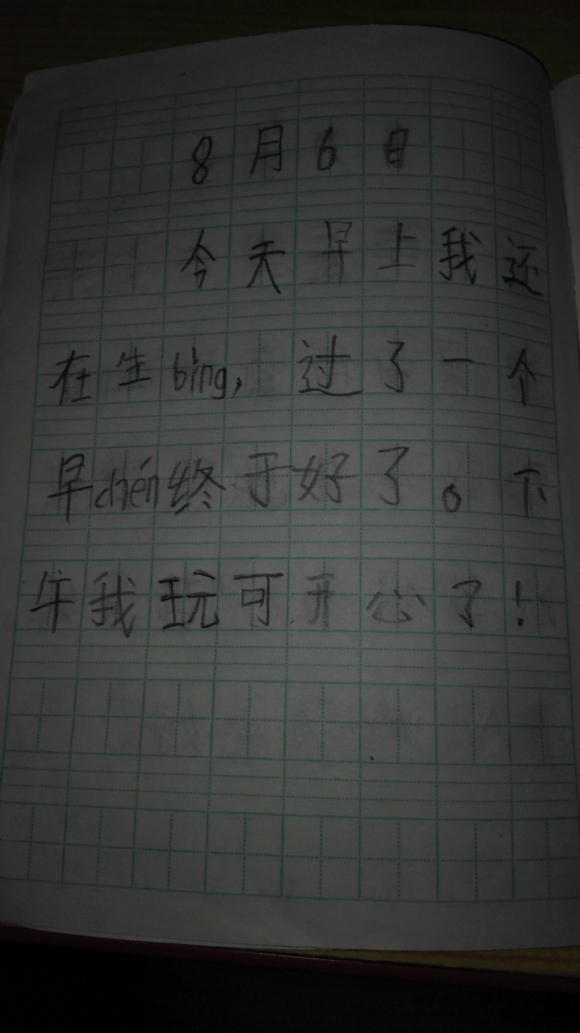 8月6日
今天早上我还
在生bìng，过了一个
早chén终于好了。下
午我玩可开心了！